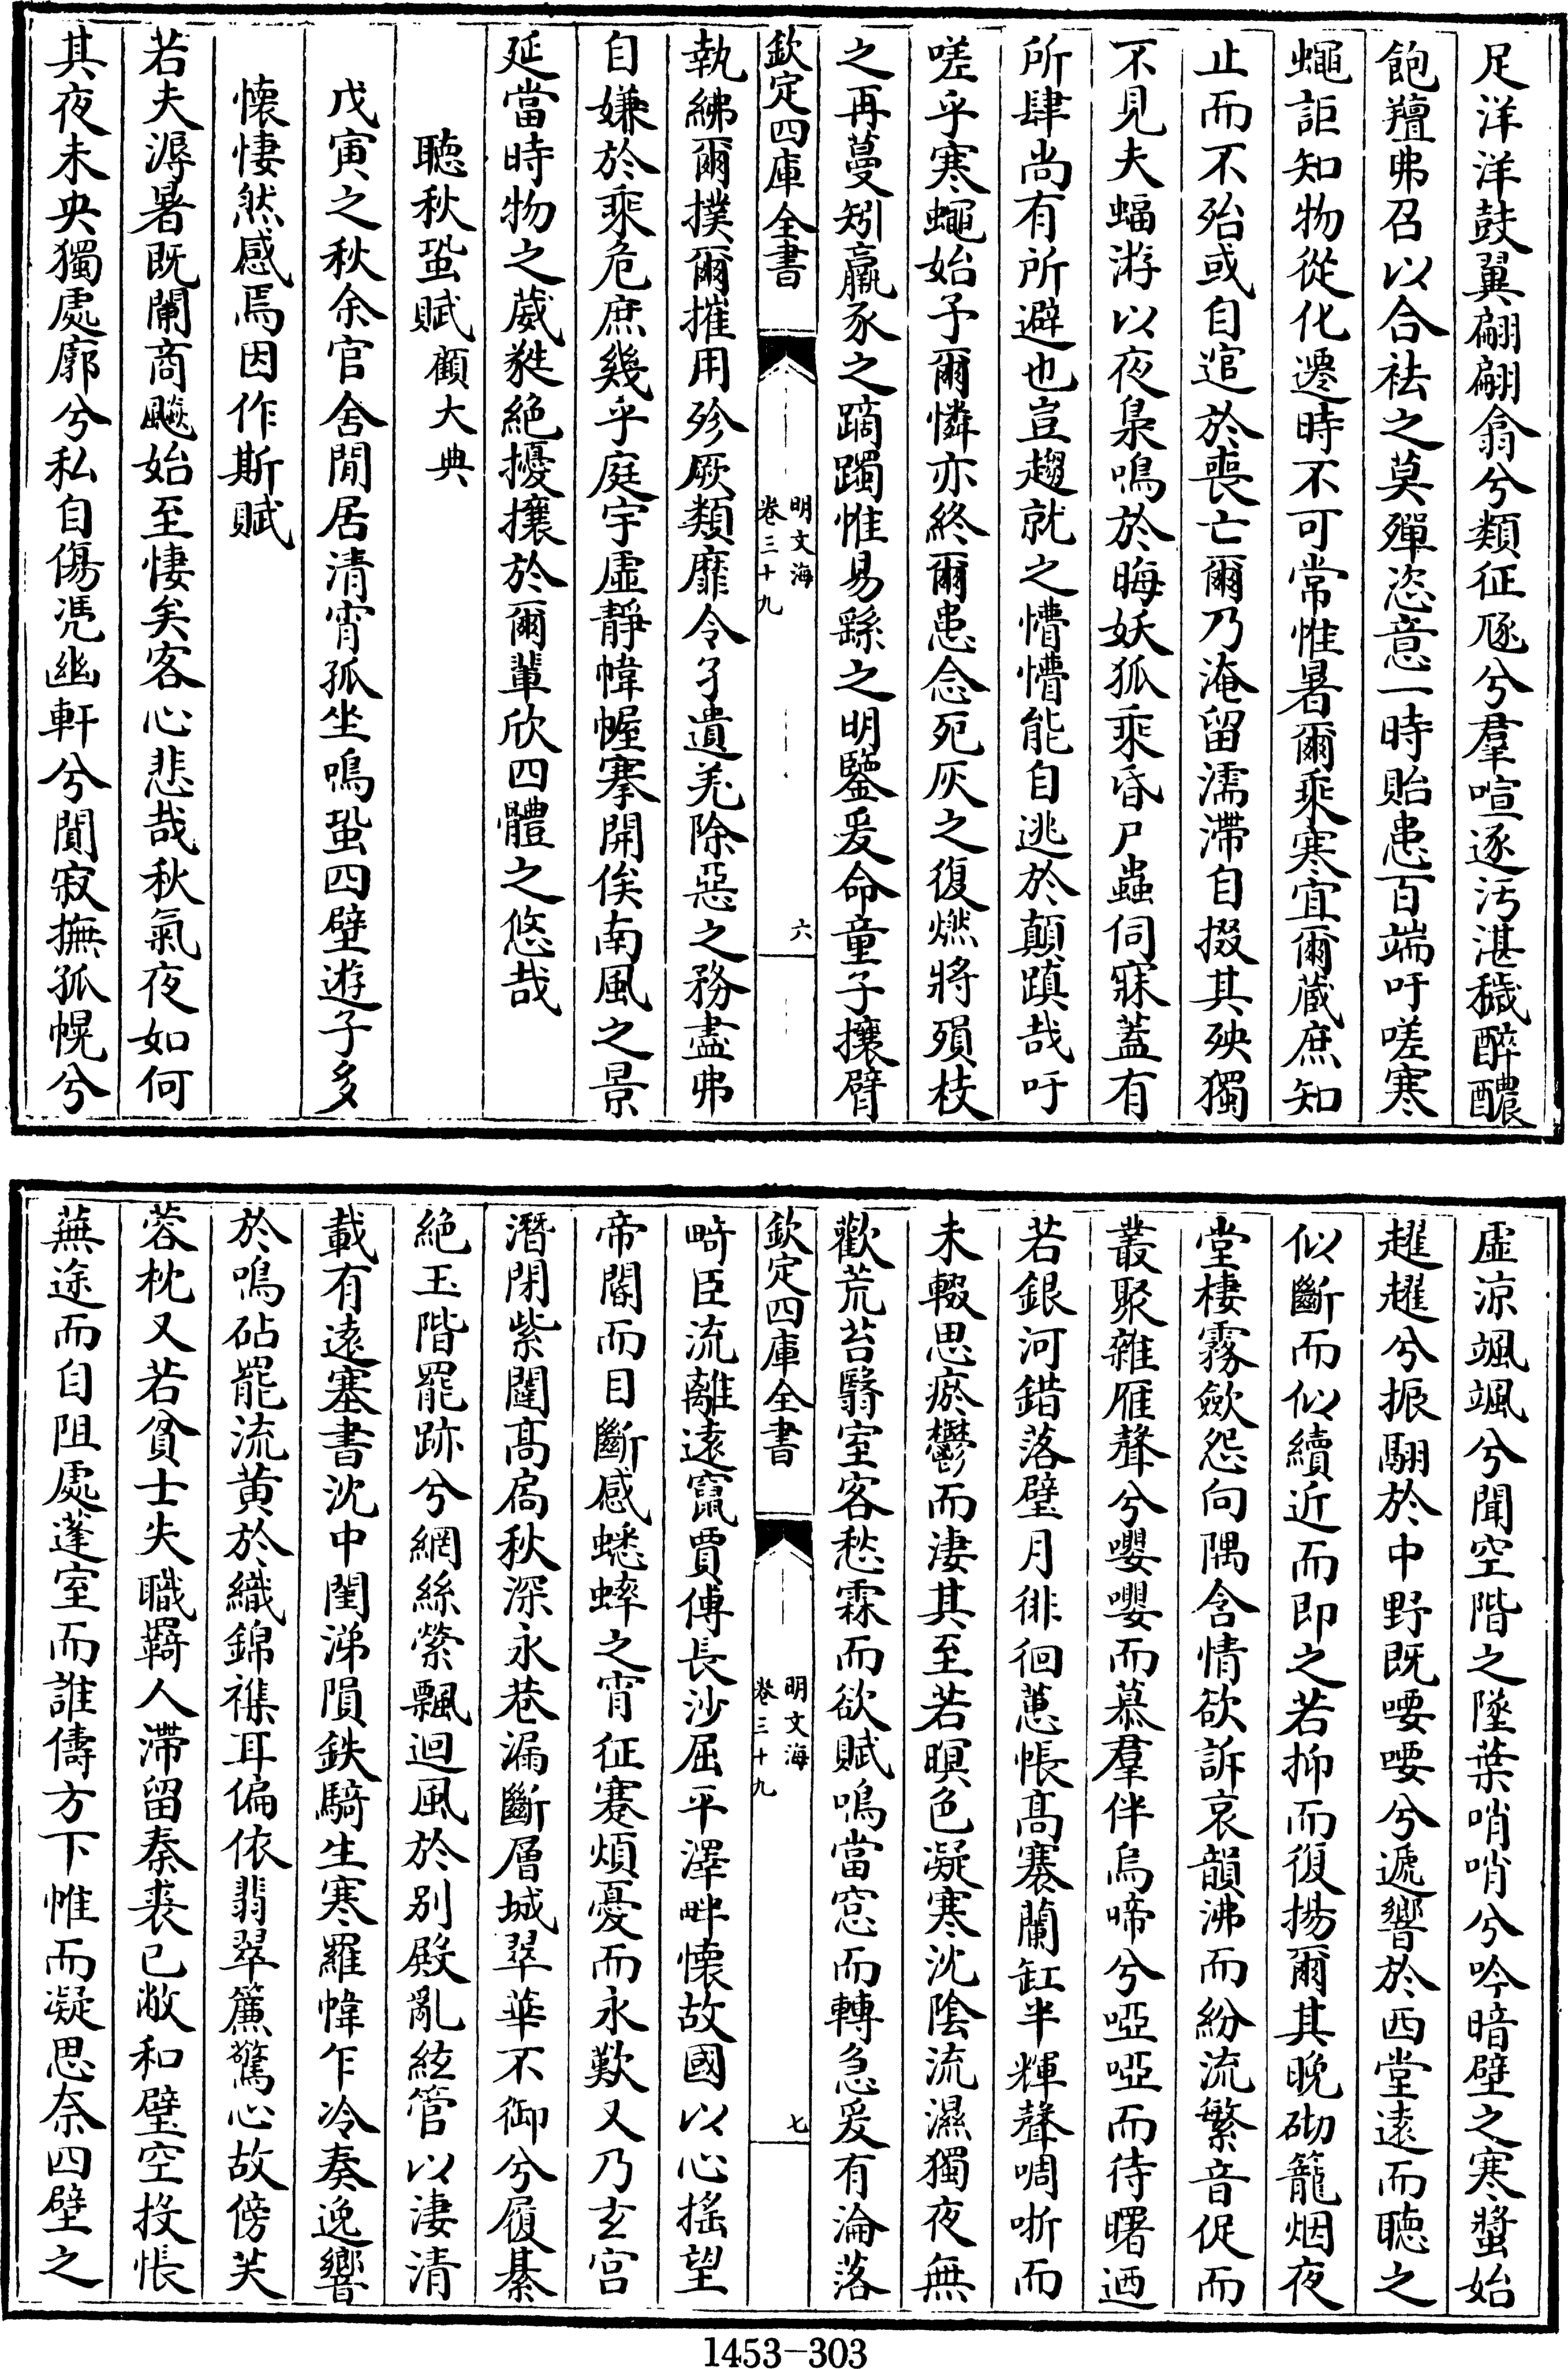 足洋洋鼓翼翩翩翕兮類征豗兮羣喧逐汚湛穢醉醲
飽羶弗召以合祛之莫殫恣意一時貽患百端吁嗟寒
蠅詎知物從化遷時不可常惟暑爾乘寒宜爾蔵庶知
止而不殆或自逭於喪亡爾乃淹留濡滯自掇其殃獨
不見夫蝠游以夜梟鳴於晦妖狐乘昏尸蟲伺寐蓋有
所肆尚有所避也豈趨就之懵懵能自逃於顛蹎哉吁
嗟乎寒蠅始予爾憐亦終爾患念死灰之復燃將殞枝
之再蔓矧羸豕之蹢躅惟易繇之明鑒爰命童子攘臂
欽定四庫全書
明文海
卷三十九
六
執紼爾撲爾摧用殄厥類靡令孑遺羌除惡之務盡弗
自嫌於乘危庶幾乎庭宇虛靜幃幄搴開俟南風之景
延當時物之葳蕤絶擾攘於爾輩欣四體之悠哉
聽秋蛩賦顧大典
戊寅之秋余官舍閒居清宵孤坐鳴蛩四壁遊子多
懐悽然感焉因作斯賦
若夫溽暑既闌商飈始至悽矣客心悲哉秋氣夜如何
其夜未央獨處廓兮私自傷凭幽軒兮閴寂撫孤幌兮
虛涼颯颯兮聞空階之墜葉哨哨兮吟暗壁之寒螿始
趯趯兮振翮於中野既喓喓兮遞響於西堂遠而聽之
似斷而似續近而即之若抑而復揚爾其晚砌籠烟夜
堂棲霧歛怨向隅含情欲訴哀韻沸而紛流繁音促而
叢聚雜雁聲兮嚶嚶而慕羣伴烏啼兮啞啞而待曙迺
若銀河錯落璧月徘徊蕙帳高褰蘭缸半輝聲啁哳而
未輟思瘀鬱而淒其至若暝色凝寒沈陰流濕獨夜無
歡荒苔翳室客愁霖而欲賦鳴當窓而轉急爰有淪落
欽定四庫全書
明文海
卷三十九
七
畸臣流離遠竄賈傅長沙屈平澤畔懐故國以心搖望
帝閽而目斷感蟋蟀之宵征蹇煩憂而永歎又乃玄宫
潛閉紫闥髙扃秋深永巷漏斷層城翠華不御兮履綦
絶玉階罷跡兮網絲縈飄迴風於别殿亂絃管以淒清
載有遠塞書沈中閨涕隕鉄騎生寒羅幃乍冷奏逸響
於鳴砧罷流黄於織錦襍耳偏依翡翠簾驚心故傍芙
蓉枕又若貧士失職羇人滯留秦裘已敝和璧空投悵
蕪途而自阻處蓬室而誰儔方下惟而凝思奈四壁之
1453-303